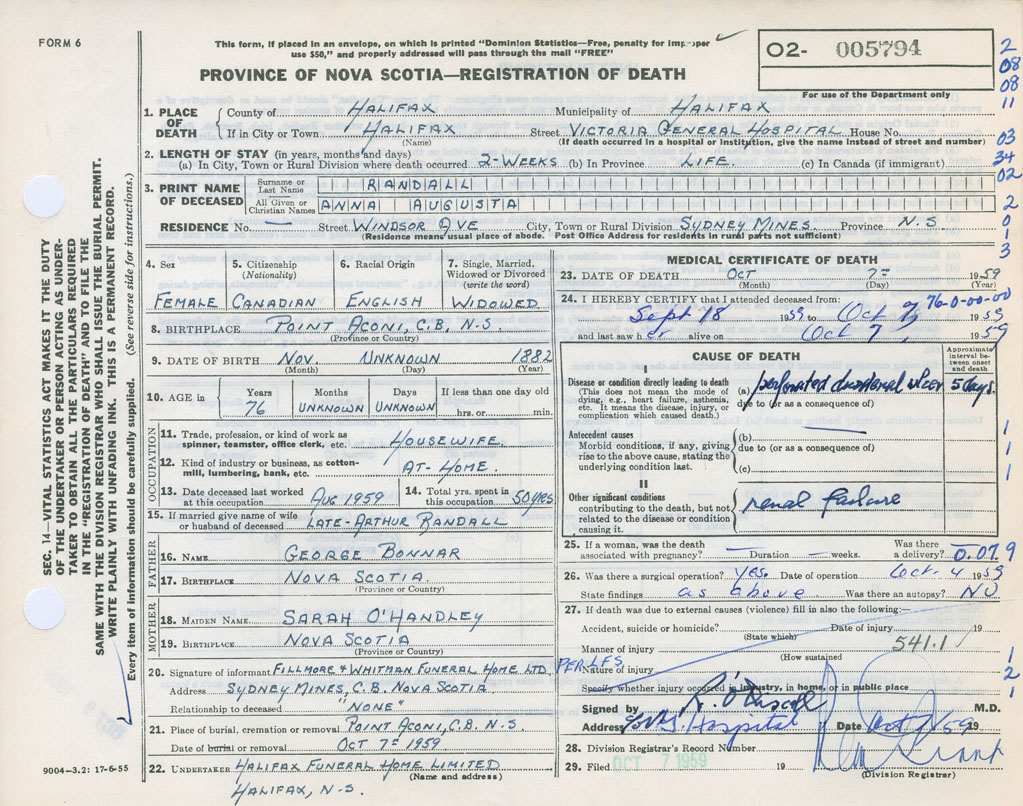 FORM 6
This form, if placed in an envelope, on which is printed "Dominion Statistics—Free, penalty for improper
use $50," and properly addressed will pass through the mail "FREE"
PROVINCE OF NOVA SCOTIA—REGISTRATION OF DEATH
02- 005794
For use of the Department only
2
08
08
11
03
34
02
2
0
1
3
SEC. 14.—VITAL STATISTICS ACT MAKES IT THE DUTY
OF THE UNDERTAKER OR PERSON ACTING AS UNDER-
TAKER TO OBTAIN ALL THE PARTICULARS REQUIRED
IN THE "REGISTRATION OF DEATH" AND TO FILE THE
SAME WITH THE DIVISION REGISTRAR WHO SHALL ISSUE THE BURIAL PERMIT.
WRITE PLAINLY WITH UNFADING INK. THIS IS A PERMANENT RECORD.
Every item of information should be carefully supplied. (See reverse side for instructions.)
1. PLACE OF DEATH County of HALIFAX Municipality of HALIFAX
If in City or Town HALIFAX Street VICTORIA GENERAL HOSPITAL House No.
(Name) (If death occurred in a hospital or institution, give the name instead of street and number)
2. LENGTH OF STAY (in years, months and days)
(a) In City, Town or Rural Division where death occurred 2-WEEKS (b) In Province LIFE. (c) In Canada (if immigrant)
3. PRINT NAME OF DECEASED Surname or Last Name RANDALL
All Given or Christian Names ANNA AUGUSTA
RESIDENCE No. — Street WINDSOR AVE City, Town or Rural Division SYDNEY MINES. Province N.S
(Residence means usual place of abode. Post Office Address for residents in rural parts not sufficient)
4. Sex 5. Citizenship (Nationality) 6. Racial Origin 7. Single, Married, Widowed or Divorced (write the word)
FEMALE CANADIAN ENGLISH WIDOWED
8. BIRTHPLACE POINT ACONI, C.B, N.S.
(Province or Country)
9. DATE OF BIRTH NOV. UNKNOWN 1882
(Month) (Day) (Year)
10. AGE in Years Months Days If less than one day old
76 UNKNOWN UNKNOWN hrs. or min.
OCCUPATION
11. Trade, profession, or kind of work as spinner, teamster, office clerk, etc. HOUSEWIFE.
12. Kind of industry or business, as cotton-mill, lumbering, bank, etc. AT-HOME.
13. Date deceased last worked at this occupation AUG 1959 14. Total yrs. spent in this occupation 50 YRS
15. If married give name of wife or husband of deceased LATE-ARTHUR RANDALL
FATHER
16. NAME GEORGE BONNAR
17. BIRTHPLACE NOVA SCOTIA.
(Province or Country)
MOTHER
18. MAIDEN NAME SARAH O'HANDLEY
19. BIRTHPLACE NOVA SCOTIA
(Province or Country)
20. Signature of informant FILLMORE & WHITMAN FUNERAL HOME LTD. PER LFS
Address SYDNEY MINES, C.B. NOVA SCOTIA
Relationship to deceased "NONE"
21. Place of burial, cremation or removal POINT ACONI, C.B. N.S
Date of burial or removal OCT 7TH 1959
22. UNDERTAKER HALIFAX FUNERAL HOME LIMITED
(Name and address)
HALIFAX, N.S.
9004—3.2: 17-6-55
MEDICAL CERTIFICATE OF DEATH
23. DATE OF DEATH OCT 7TH 1959
(Month) (Day) (Year)
24. I HEREBY CERTIFY that I attended deceased from: 76-0-00-00
Sept 18 1959 to Oct 7 1959
and last saw her alive on Oct 7 1959
CAUSE OF DEATH
Approximate interval between onset and death
I
Disease or condition directly leading to death (a) perforated duodenal ulcer 5 days.
(This does not mean the mode of dying, e.g., heart failure, asthenia, etc. It means the disease, injury, or complication which caused death.) due to (or as a consequence of)
Antecedent causes (b) —
Morbid conditions, if any, giving rise to the above cause, stating the underlying condition last. due to (or as a consequence of)
(c)
II
Other significant conditions contributing to the death, but not related to the disease or condition causing it. renal failure
1
1
1
25. If a woman, was the death associated with pregnancy? — Duration — weeks. Was there a delivery? 0.07.9
26. Was there a surgical operation? Yes. Date of operation Oct. 4 1959
State findings as above Was there an autopsy? NO
27. If death was due to external causes (violence) fill in also the following:—
Accident, suicide or homicide? Date of injury 19
(State which)
Manner of injury 541.1
(How sustained)
Nature of injury
Specify whether injury occurred in industry, in home, or in public place
1
2
1
Signed by R. O'Driscoll M.D.
Address Hospital Date Oct 7/59 19
28. Division Registrar's Record Number
29. Filed OCT 7 1959 19
(Division Registrar)